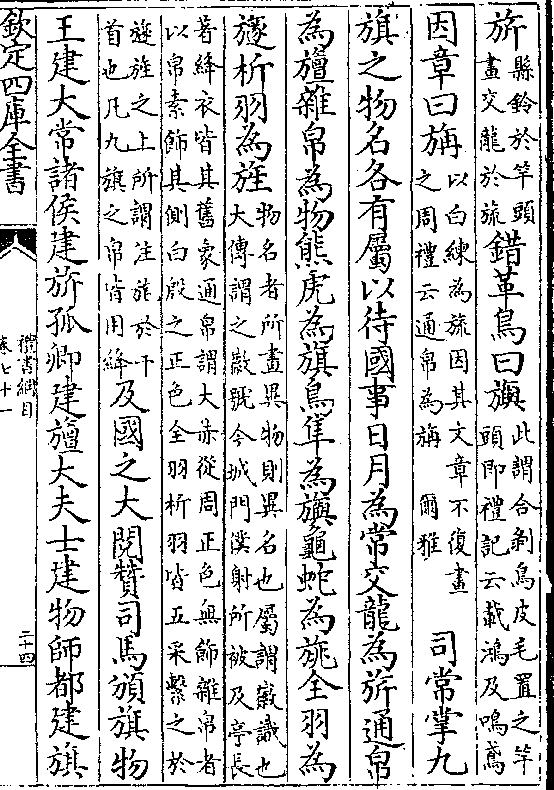 旂縣鈴於竿頭畫交龍於旒錯革鳥曰旟此謂合剝鳥皮毛置之竿頭即禮記云載鴻及鳴鳶
因章曰旃以白練為旒因其文章不復畫之周禮云通帛為旃　爾雅　司常掌九
旗之物名各有屬以待國事日月為常交龍為旂通帛
為旜雜帛為物熊虎為旗鳥隼為旟龜蛇為旐全羽為
旞析羽為旌物名者所畫異物則異名也屬謂徽識也大傳謂之徽號今城門僕射所被及亭長
著絳衣皆其舊象通帛謂大赤從周正色無飾雜帛者以帛素飾其側白殷之正色全羽析羽皆五采繫之於
旞旌之上所謂注旄於干首也凡九旗之帛皆用絳及國之大閱贊司馬頒旗物
王建大常諸侯建旂孤卿建旜大夫士建物師都建旗
欽定四庫全書
禮書綱目
卷七十一
二十四